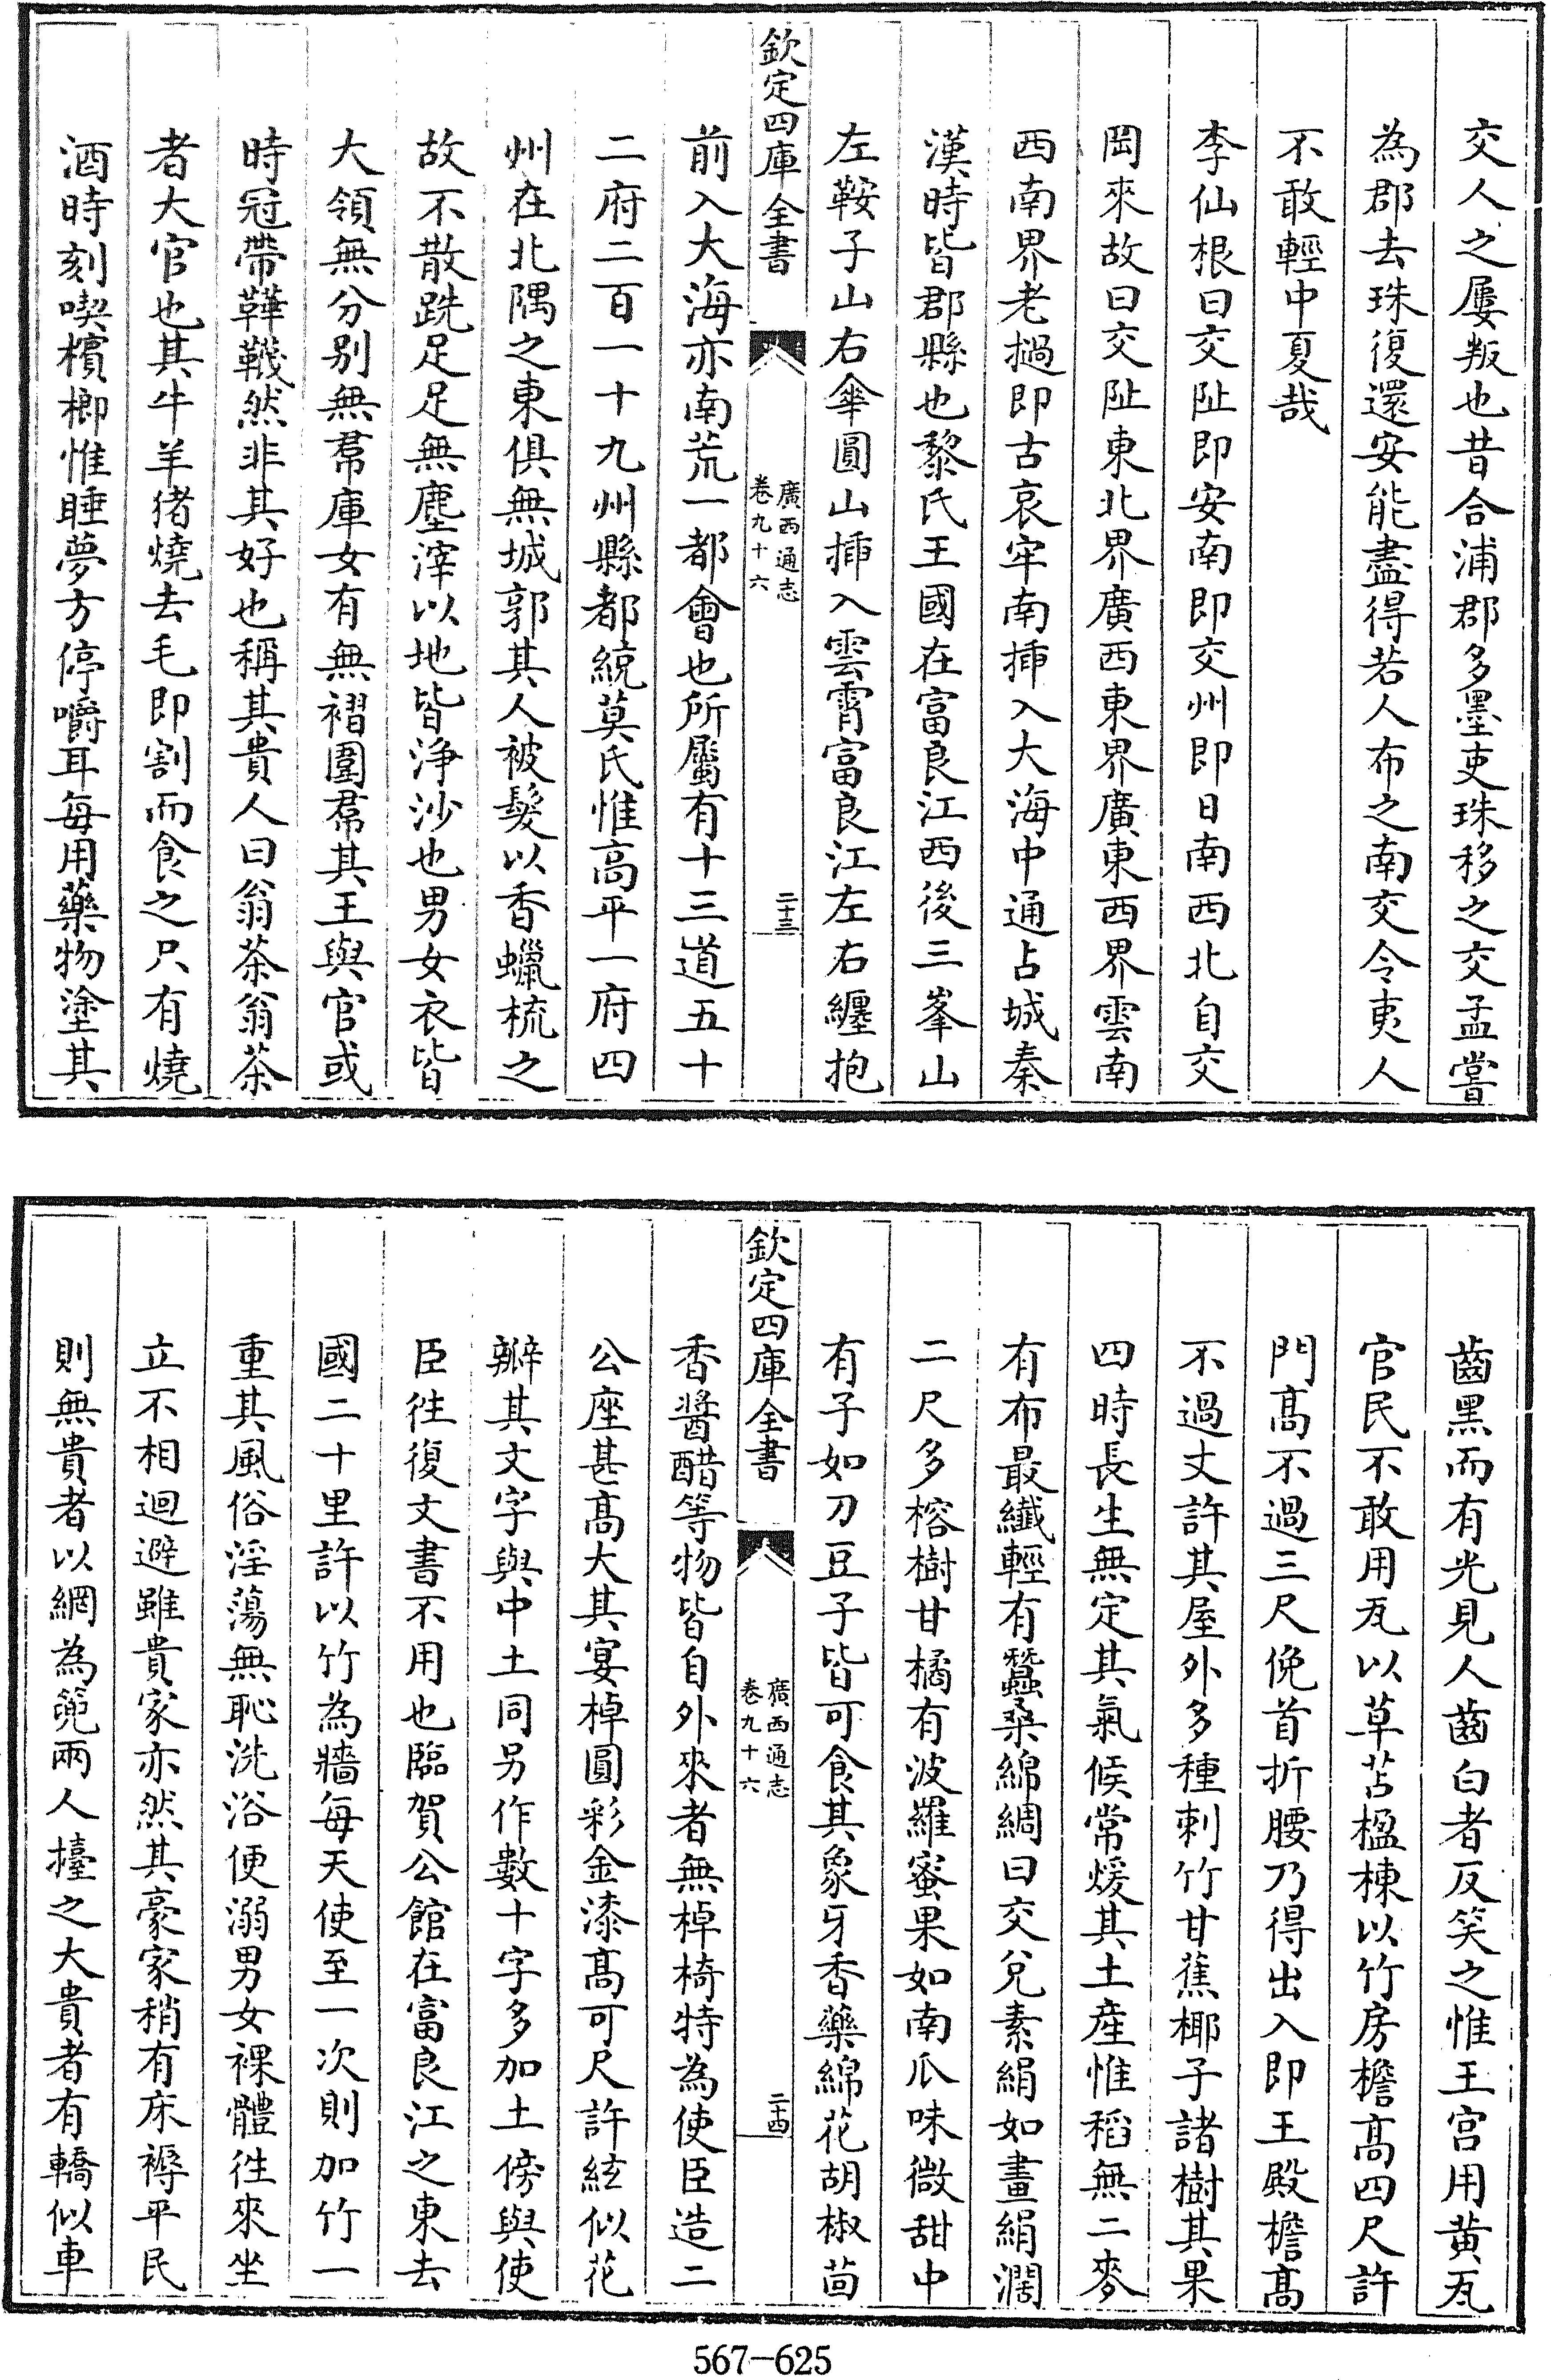 交人之屢叛也昔合浦郡多墨吏珠移之交孟嘗
為郡去珠復還安能盡得若人布之南交令夷人
不敢輕中夏哉
李仙根曰交阯即安南即交州即日南西北自交
岡來故曰交阯東北界廣西東界廣東西界雲南
西南界老撾即古哀牢南揷入大海中通占城秦
漢時皆郡縣也黎氏王國在富良江西後三峯山
左鞍子山右傘圓山揷入雲霄富良江左右纏抱
欽定四庫全書
廣西通志
卷九十六
二十三
前入大海亦南荒一都會也所屬有十三道五十
二府二百一十九州縣都統莫氏惟高平一府四
州在北隅之東俱無城郭其人被髮以香蠟梳之
故不散跣足足無塵滓以地皆淨沙也男女衣皆
大領無分別無帬庫女有無褶圍帬其王與官或
時冠帶鞾韈然非其好也稱其貴人曰翁茶翁茶
者大官也其牛羊猪燒去毛即割而食之只有燒
酒時刻喫檳榔惟睡夢方停嚼耳每用藥物塗其
齒黑而有光見人齒白者反笑之惟王宫用黄瓦
官民不敢用瓦以草苫楹棟以竹房檐高四尺許
門高不過三尺俛首折腰乃得出入即王殿檐高
不過丈許其屋外多種刺竹甘蕉椰子諸樹其果
四時長生無定其氣候常煖其土産惟稻無二麥
有布最纖輕有蠶桑綿綢曰交兊素絹如畫絹濶
二尺多榕樹甘橘有波羅蜜果如南瓜味微甜中
有子如刀豆子皆可食其象牙香藥綿花胡椒茴
欽定四庫全書
廣西通志
卷九十六
二十四
香醬醋等物皆自外來者無棹椅特為使臣造二
公座甚高大其宴棹圓彩金漆高可尺許絃似花
瓣其文字與中土同另作數十字多加土傍與使
臣徃復文書不用也臨賀公館在富良江之東去
國二十里許以竹為牆每天使至一次則加竹一
重其風俗淫蕩無恥洗浴便溺男女裸體徃來坐
立不相迴避雖貴家亦然其豪家稍有床褥平民
則無貴者以網為篼兩人擡之大貴者有轎似車
567-625